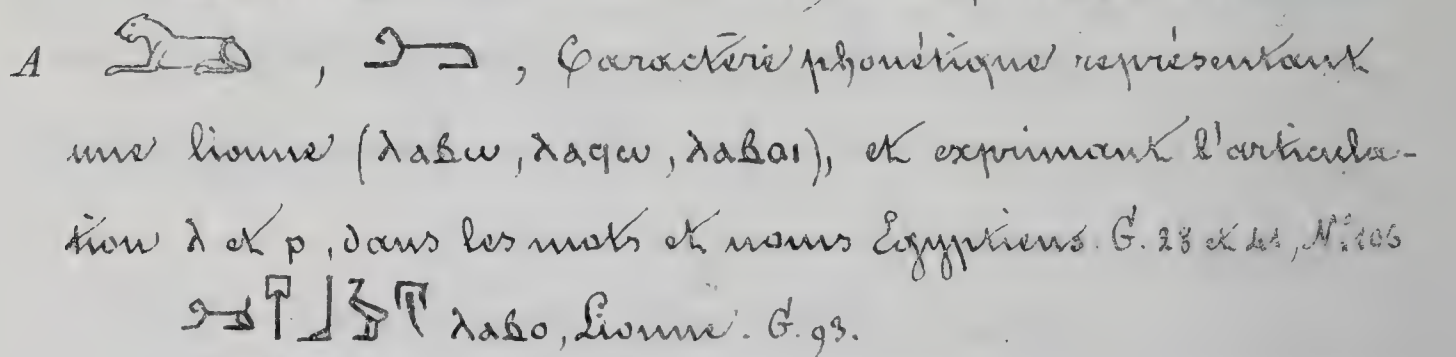 A 𓃭 , , Caractère phonétique représentant
une lionne (ⲗⲁⲃⲱ, ⲗⲁϥⲱ, ⲗⲁⲃⲟⲓ), et exprimant l'articula-
tion ⲗ et ⲣ, dans les mots et noms Egyptiens. G. 28 et 41, N° 106
ⲗⲁⲃⲟ, Lionne. G. 93.